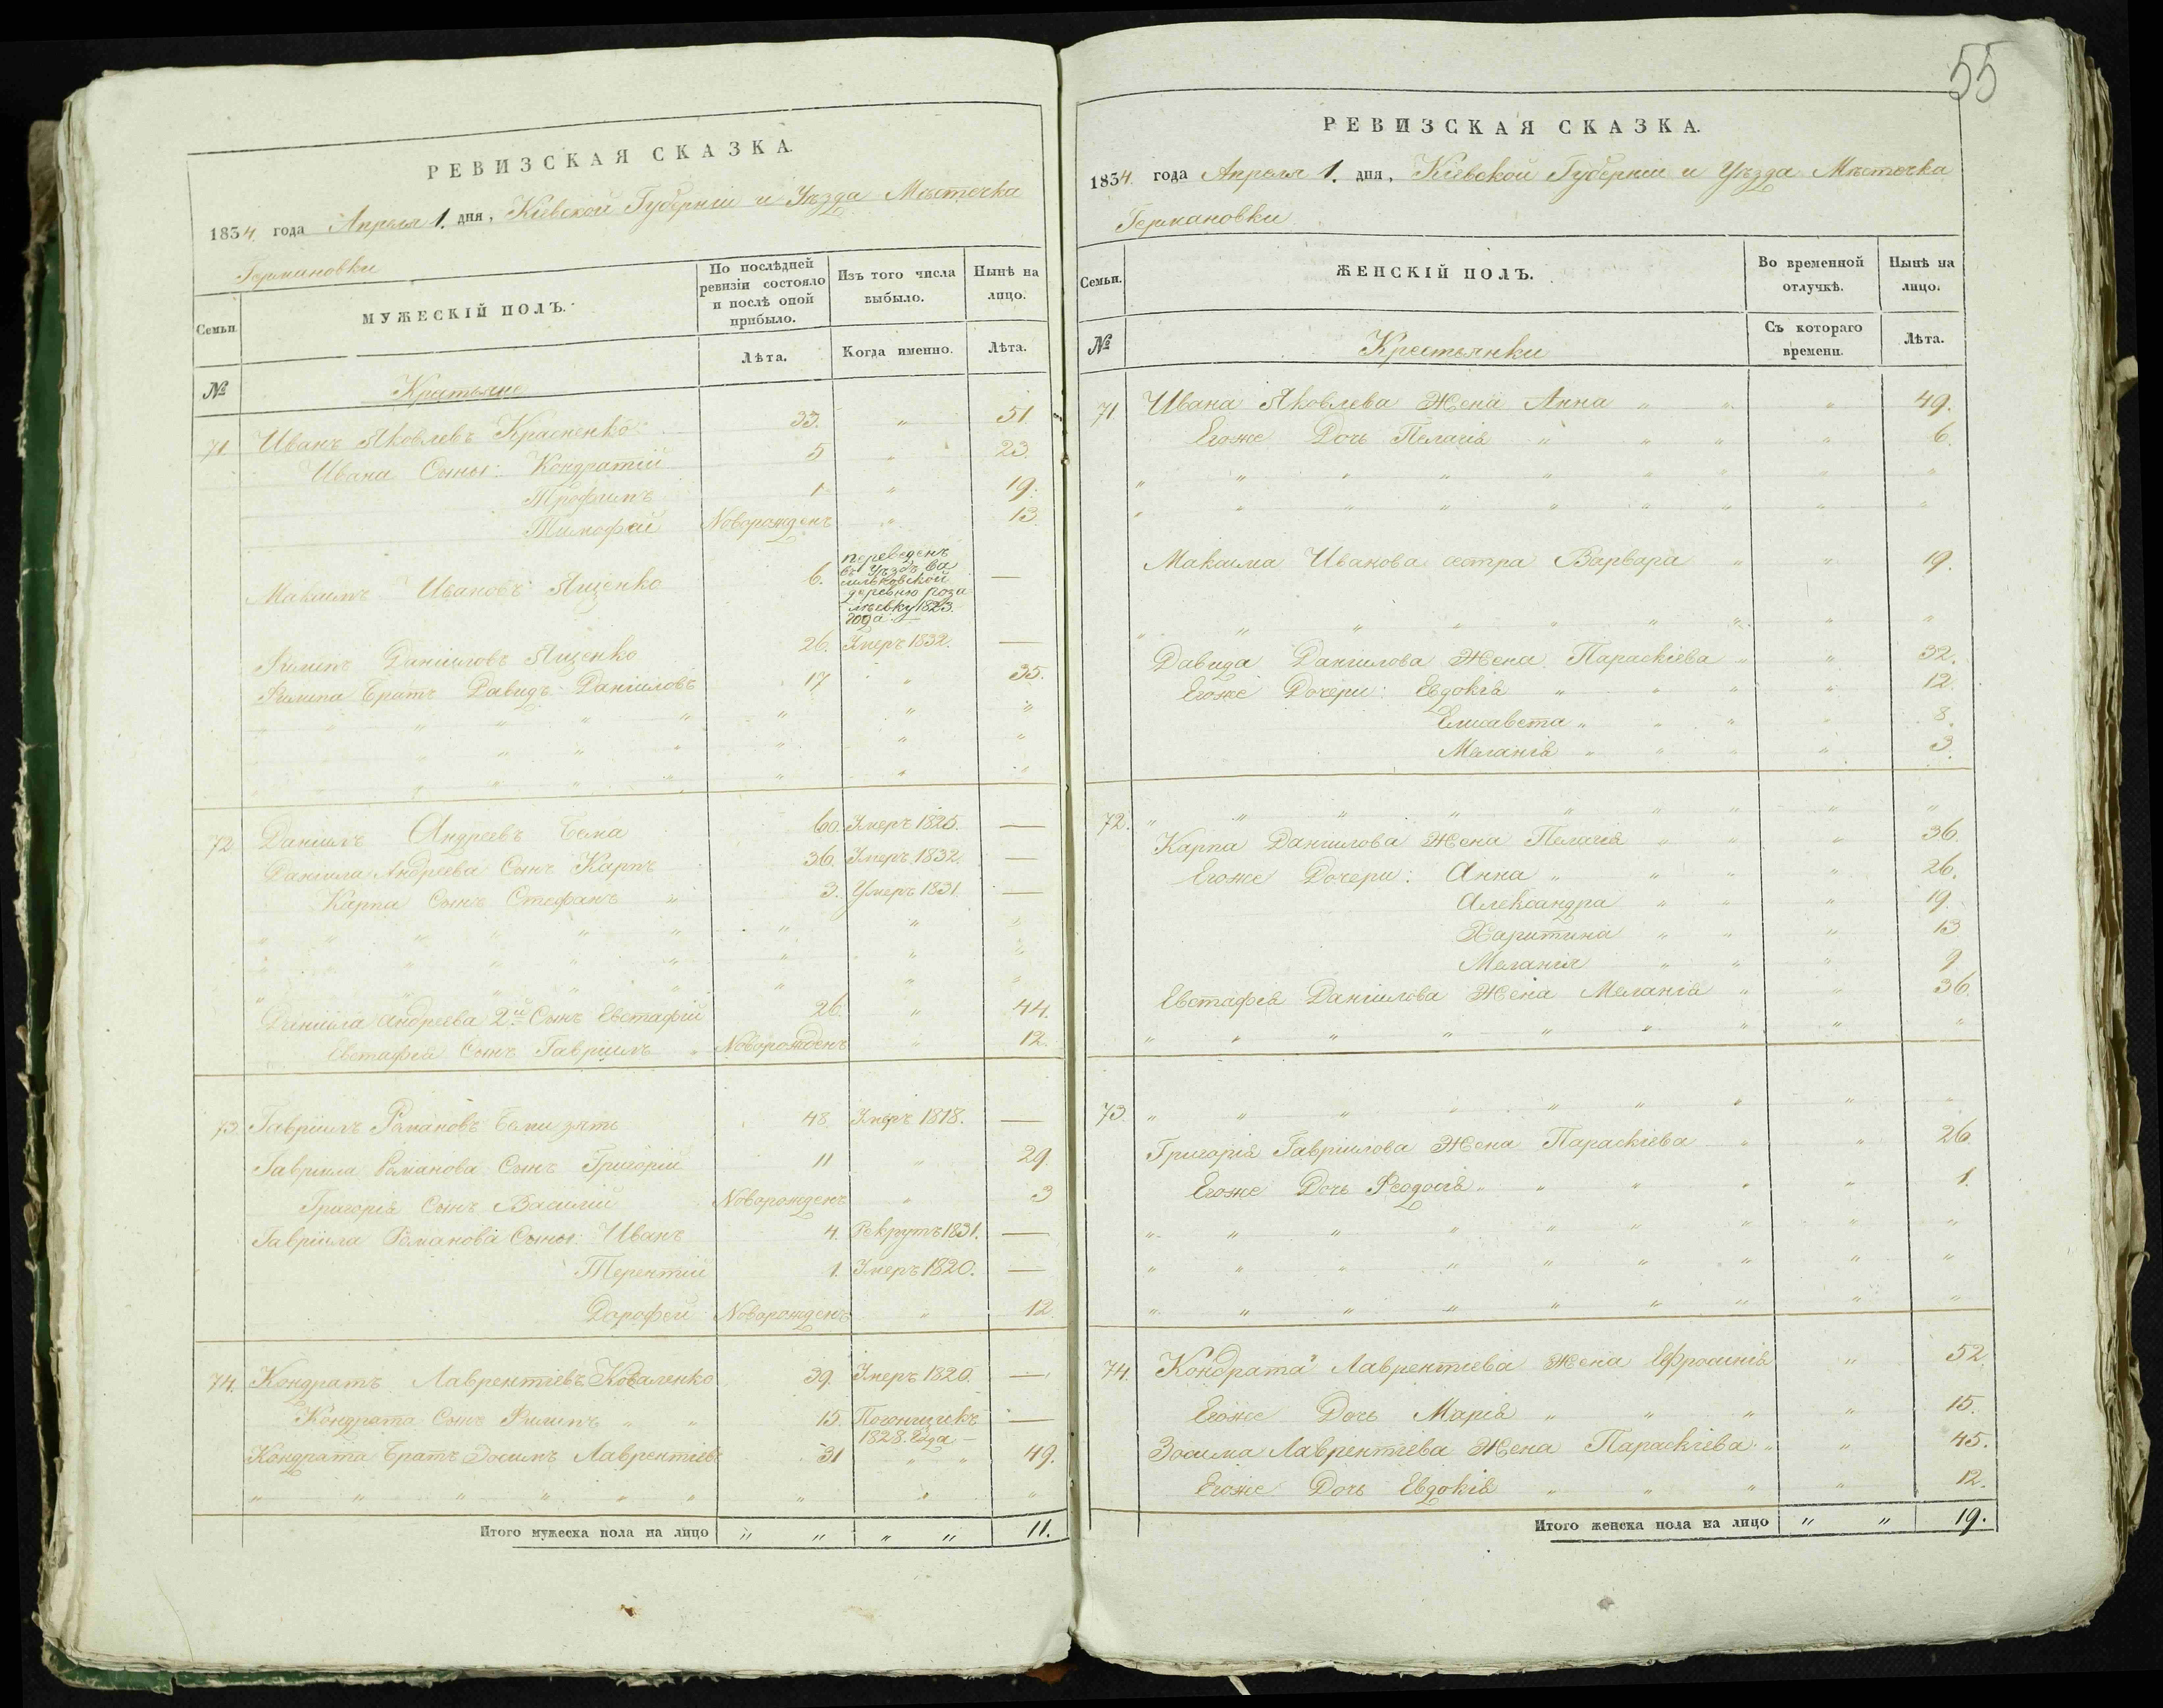 55
РЕВИЗСКАЯ СКАЗКА.
1834. года Апреля 1. дня, Кіевской Губерніи и Уѣзда Мѣстечка
Германовки
Семьи.
МУЖЕСКІЙ ПОЛЪ.
По послѣдней ревизіи состояло и послѣ оной прибыло.
Изъ того числа выбыло.
Нынѣ на лицо.
№
Лѣта.
Когда именно.
Лѣта.
Крестьяне
71. Иванъ Яковлевъ Красненко 33. " 51
Ивана Сыны: Кондратій 5 " 23.
Трофимъ 1 " 19.
Тимофей Новорожденъ " 13.
Максимъ Ивановъ Яценко 6. переведенъ въ Уѣздъ Васильковской деревню 1823. года —
Филипъ Даніиловъ Яценко 26. Умеръ 1832. —
Филипа Братъ Давидъ Даніиловъ 17 " 35.
" " " " " " " "
" " " " " " " "
" " " " " " " "
72 Даніилъ Андреевъ Бема 60. Умеръ 1825. —
Даніила Андреева Сынъ Карпъ 36. Умеръ 1832. —
Карпа Сынъ Стефанъ " 3. Умеръ 1831 —
" " " " " " " " "
" " " " " " " " "
" " " " " " " " "
Даніила Андреева 2й Сынъ Евстафій 26. " 44.
Евстафія Сынъ Гавріилъ " Новорожденъ " 12.
73. Гавріилъ Романовъ Бемы зять 48. Умеръ 1818. —
Гавріила Романова Сынъ Григорій 11 " 29
Григорія Сынъ Василій Новорожденъ " 3
Гавріила Романова Сыны: Иванъ 4. Рекрутъ 1831. —
Терентій 1. Умеръ 1820. —
Дорофей Новорожденъ " 12
74. Кондратъ Лаврентіевъ Коваленко 39. Умеръ 1820. —
Кондрата Сынъ Филипъ " " 15. Погонщикъ 1828. года —
Кондрата Братъ Зосимъ Лаврентіевъ 31 " " 49.
" " " " " " " " "
Итого мужеска пола на лицо " " " " 11.
РЕВИЗСКАЯ СКАЗКА.
1834. года Апреля 1. дня, Кіевской Губерніи и Уѣзда Мѣстечка
Германовки
Семьи.
ЖЕНСКІЙ ПОЛЪ.
Во временной отлучкѣ.
Нынѣ на лицо.
№
Крестьянки
Съ котораго времени.
Лѣта.
71 Ивана Яковлева Жена Анна " " " 49.
Егоже Дочь Пелагія " " " " 6.
" " " " " " " " "
" " " " " " " " "
Максима Иванова сестра Варвара " " 19.
" " " " " " " " "
Давида Даніилова Жена Параскіева " " 32.
Егоже Дочери: Евдокія " " " " 12.
Елисавета " " " " 8.
Меланія " " " " 3.
72. " " " " " " " " "
Карпа Даніилова Жена Пелагія " " " 36.
Егоже Дочери: Анна " " " " 26.
Александра " " " 19.
Харитина " " " 13
Меланія " " " 9
Евстафія Даніилова Жена Меланія " " 36.
" " " " " " " " "
73. " " " " " " " " "
Григорія Гавріилова Жена Параскіева " " 26
Егоже Дочь Феодосія " " " " " 1.
" " " " " " " " "
" " " " " " " " "
" " " " " " " " "
74. Кондрата Лаврентіева Жена Ефросинія " 52.
Егоже Дочь Марія " " " " 15.
Зосима Лаврентіева Жена Параскіева " " 45.
Егоже Дочь Евдокія " " " " 12.
Итого женска пола на лицо " " 19.